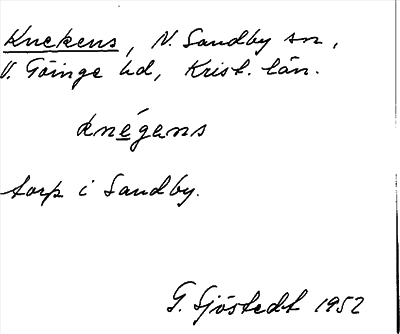 Knekens, N. Sandby sn,
V. Göinge hd, Krist. län.
knégens
torp i Sandby.
G. Sjöstedt 1952